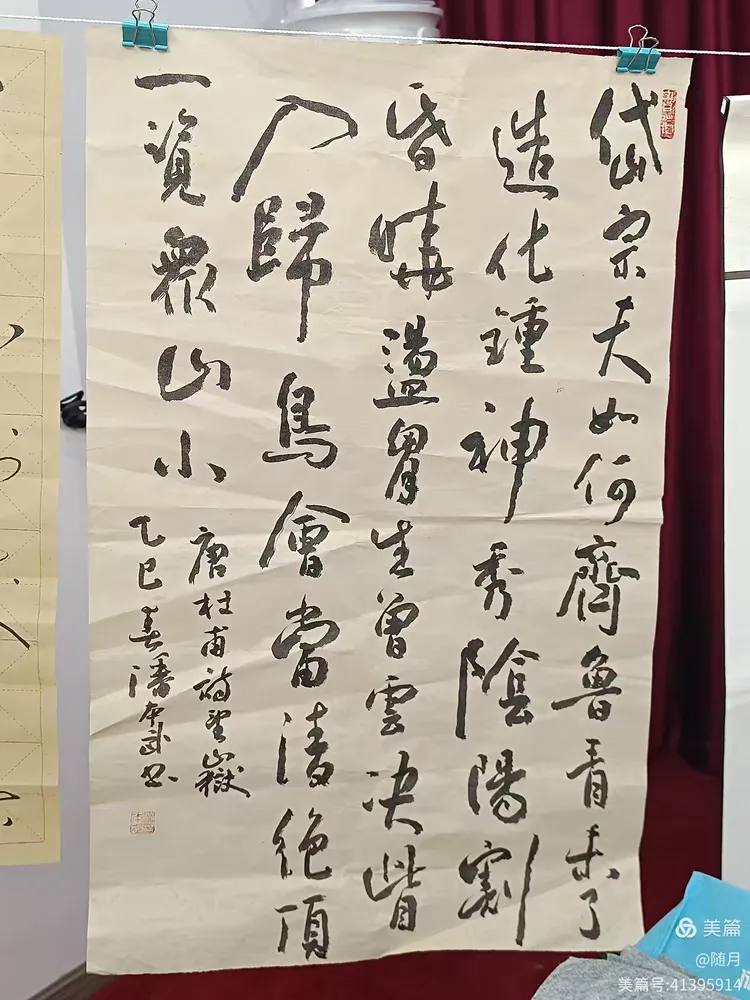 岱宗夫如何齊魯青未了
造化鍾神秀陰陽割
昏曉盪胷生曾雲決眥
入歸鳥會當淩絕頂
一覽衆山小
唐杜甫詩望嶽
乙巳春潘本武书
美篇
@随月
美篇号:41395914